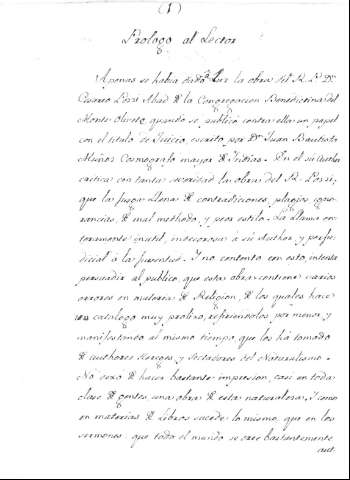 (1)
Prologo al Lector
Apenas se habia dado a luz la obra del R. P. Dn
Cesareo Pozzi Abad de la Congregacion Benedictina del
Monte Oliveto, quando se publicò contra ella un papel
con el titulo de Juicio, escrito por Dn Juan Bautista
Muños Cosmografo mayor de Indias. En el su Author
critica con tanta severidad la obra del R. Pozzi,
que la juzga llena de contradiciones, plagios, igno-
rancias, de mal methodo, y peor estilo. La llama en-
teramente inutil, indecorosa à su Author y perju-
dicial à la juventud. I no contento con esto, intenta
persuadir al publico, que esta obra contiene varios
errores en materia de Religion, de los quales hace
un catalogo muy prolixo, refiriendolos por menor, y
manifestando al mismo tiempo, que los ha tomado
de authores Hereges, y Sectadores del Naturalismo.
No dexó de hacer bastante impresion, casi en toda
clase de gentes, una obra de esta naturaleza. I como
en materias de Libros sucede lo mismo, que en los
sermones: que todo el mundo se cree bastantemente
aut.